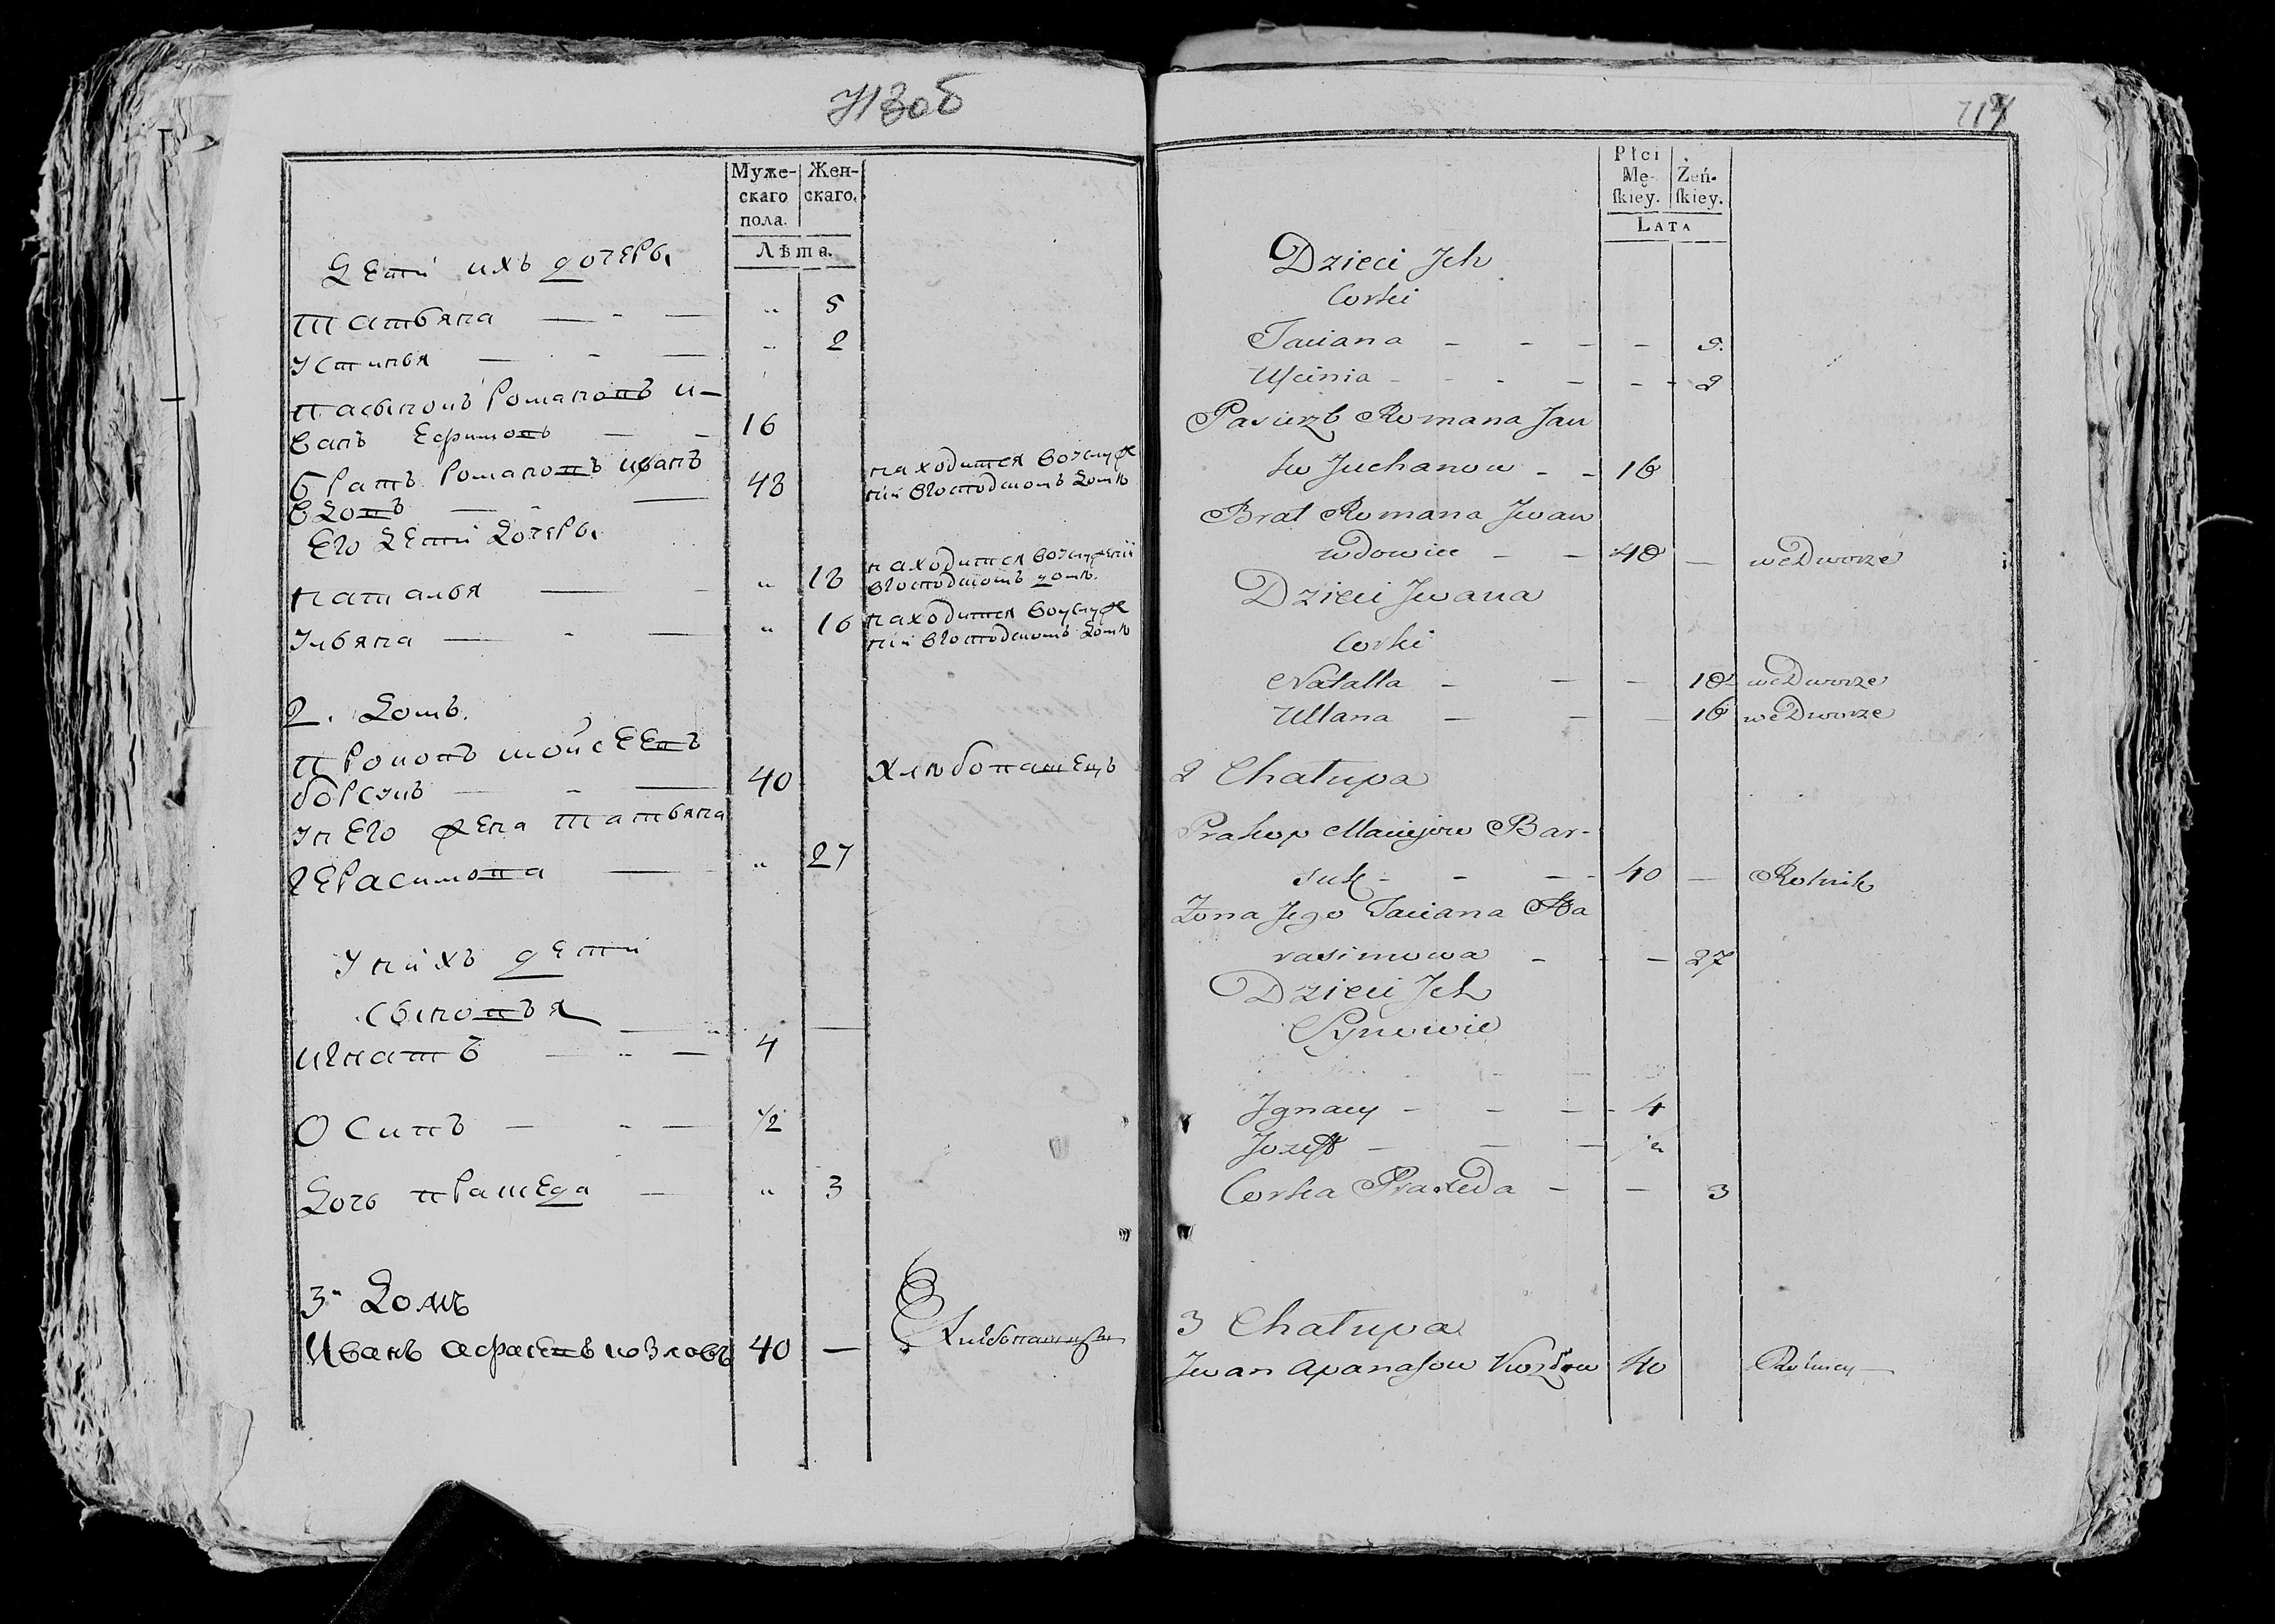 713об
Муже-
скаго
пола.
Жен-
скаго.
Лѣта.
Дети ихъ дочеры
татьяна — - — " 5
устинья — - — " 2
пасынокъ Романовъ и-
ванъ Ефимовъ — - 16
братъ Романовъ иванъ
вдовъ — - — 48
находится воуслуже
нии вгосподскомъ домѣ
Его дети дочеры
наталья — - " 18
находится воуслужении
вгосподскомъ домѣ.
ульяна — - — " 16
находится воуслуже
нии вгосподскомъ домѣ
2. домъ.
прокопъ мойсеевъ
борсукъ — - — 40 хлѣбопашецъ
у нЕго жена татьяна
герасимова — - " 27
У нихъ дети
сыновья
игнатъ — " — 4
Осипъ — - — 1/2
дочь прашеда — " 3
3й домъ
Иванъ афанасевъ козловъ 40 — хлибопашецъ
714
Płci
Mę-
ſkiey.
Żeń-
ſkiey.
LATA
Dzieci Jch
Corki
Taciana - - - - 5.
Uſcinia - - - - - 2
Pasierzb Romana Jan
ko Juchanow - - 16
Brat Romana Jwan
wdowiec - - 48 — we Dworze
Dzieci Jwana
Corki
Natalla - - - 18 we Dworze
Ullana - - - 16 we Dworze
2 Chałupa
Prakop Maciejow Bar-
suk - - - - 40 — Rolnik
Żona Jego Taciana Ha
rasimowa - - - 27
Dzieci Jch
Synowie
Jgnacy - - - - 4
Jozeff - - - 1/2
Corka Praxeda - - 3
3 Chałupa
Jwan Apanaſow Kozłow 40 Rolnicy —